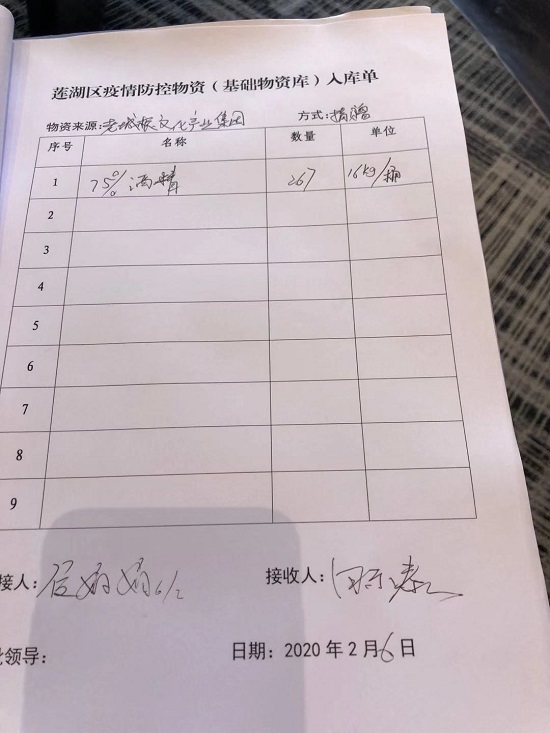 莲湖区疫情防控物资（基础物资库）入库单
物资来源:老城根文化产业集团 方式:捐赠
序号 名称 数量 单位
1 75% 酒精 267 16kg/桶
2
3
4
5
6
7
8
9
接人: 6/2 接收人:
领导: 日期: 2020 年 2 月 6 日